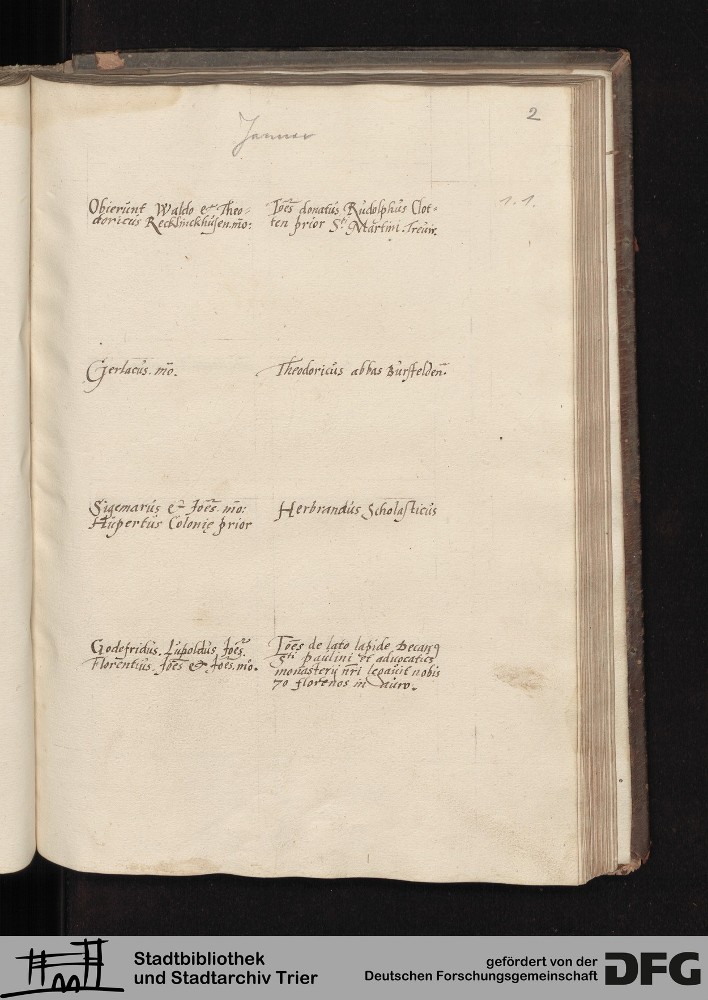 2
Januar
Obierunt Waldo & Theo=
doricus Recklinckhusen. mo:
Joēs donatus Rudolphus Clot=
ten prior Sti Martini. Trevir.
1. 1.
Gerlacus. mō.
Theodoricus abbas Bursfelden̄.
Sigemarus & Joēs. mo:
Hupertus Colonię prior
Herbrandus Scholasticus
Godefridus. Lupoldus Joēs.
Florentius. Joēs & Joēs. mō.
Joēs de lato lapide Decanꝰ
Sti paulini et advocatus
monasterij nr̄i legavit nobis
70 florenos in auro.
Stadtbibliothek
und Stadtarchiv Trier
gefördert von der
Deutschen Forschungsgemeinschaft
DFG